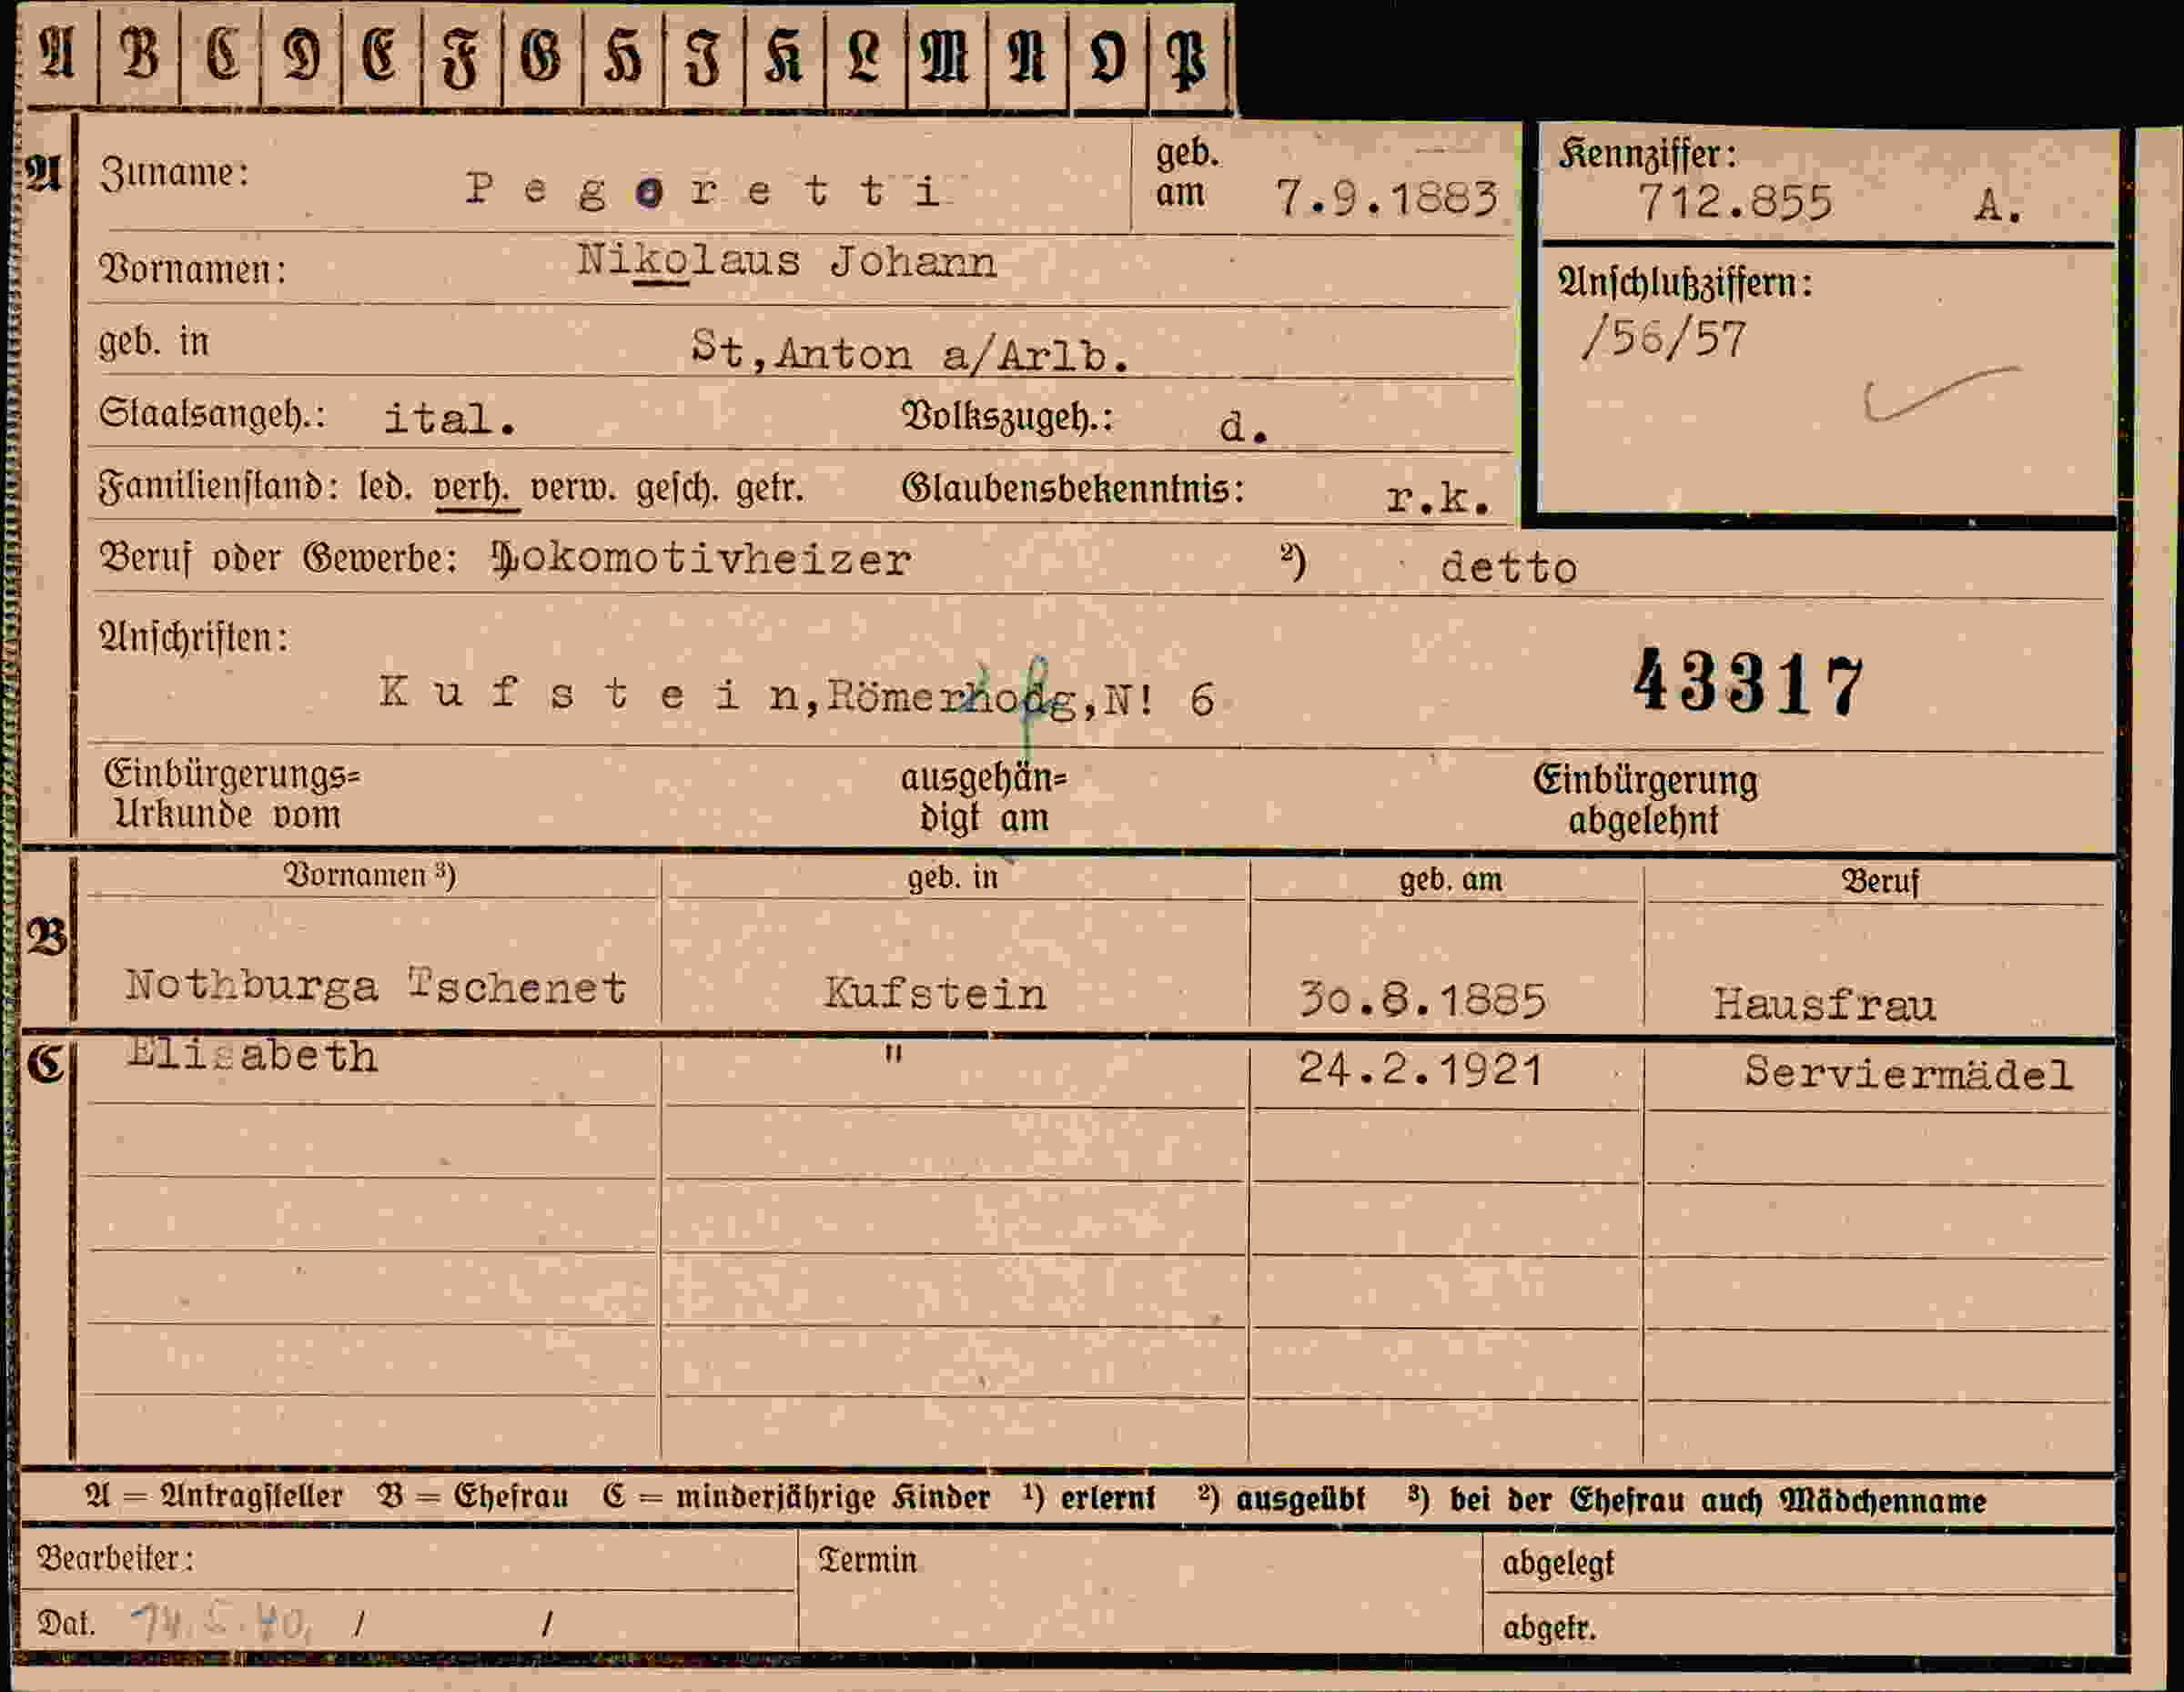 A B C D E F G H I K L M N O P
A Zuname: Pegoretti geb. am 7.9.1883
Kennziffer: 712.855 A.
Vornamen: Nikolaus Johann
Anschlußziffern:
/56/57
geb. in St,Anton a/Arlb.
Staatsangeh.: ital. Volkszugeh.: d.
Familienstand: led. verh. verw. gesch. getr. Glaubensbekenntnis: r.k.
Beruf oder Gewerbe: Lokomotivheizer ²) detto
Anschriften:
43317
Kufstein, N! 6
Einbürgerungs= ausgehän= Einbürgerung
Urkunde vom digt am abgelehnt
Vornamen ³) geb. in geb. am Beruf
B Nothburga Tschenet Kufstein 30.8.1885 Hausfrau
C Elisabeth " 24.2.1921 Serviermädel
A = Antragsteller B = Ehefrau C = minderjährige Kinder ¹) erlernt ²) ausgeübt ³) bei der Ehefrau auch Mädchenname
Bearbeiter: Termin abgelegt
Dat. 14.5.40, / / abgetr.